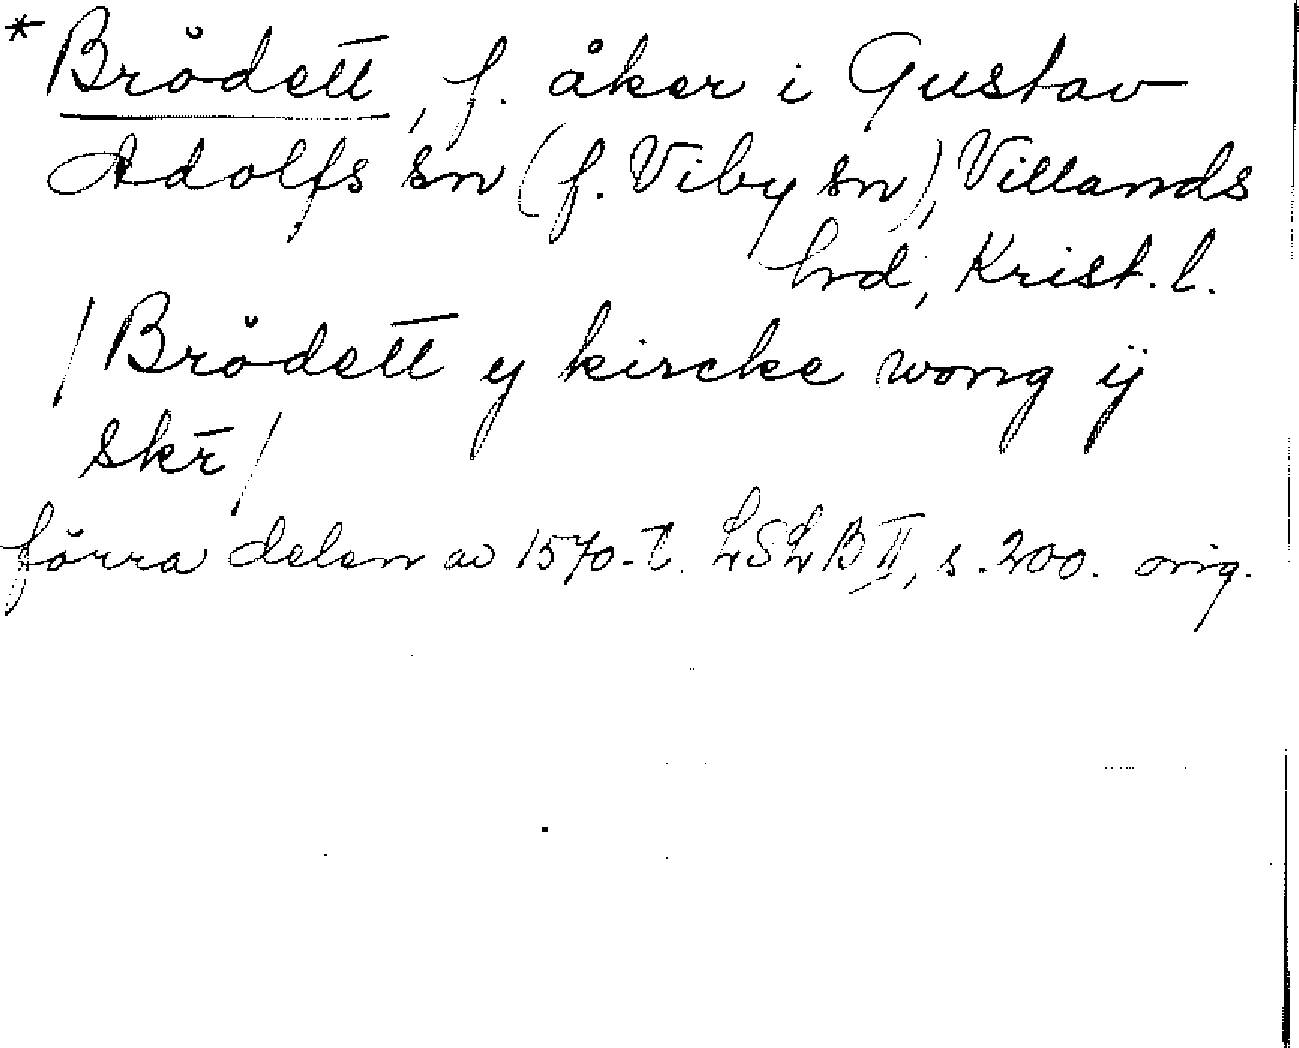 *Brödett, f. åker i Gustav
Adolfs sn (f. Viby sn), Villands
hrd, Krist. l.
/Brödett y kircke wong ÿ
skr̄/
förra delen av 1570-t. LSLB II, s. 200. orig.